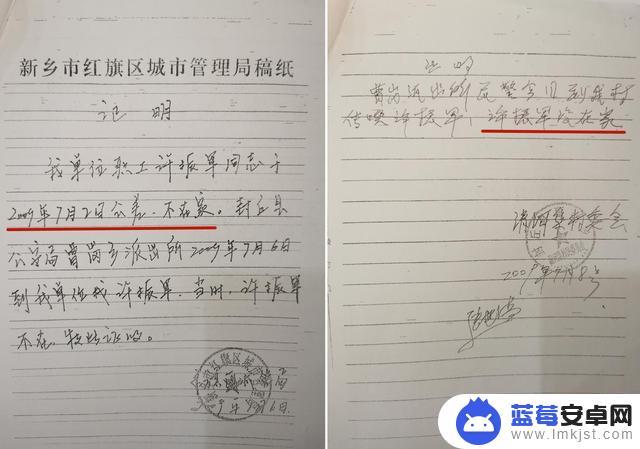 新乡市红旗区城市管理局稿纸
证明
我单位职工许振军同志于
2009年7月2日公差.不在家。封丘县
公安局曹岗乡派出所2009年7月6日
到我单位找许振军.当时,许振军
不在.特此证明。
证明
曹岗派出所民警今日到我村
传唤许振军,许振军没在家
村委会
2009年7月8号
蓝莓安卓网
www.lmkjst.com